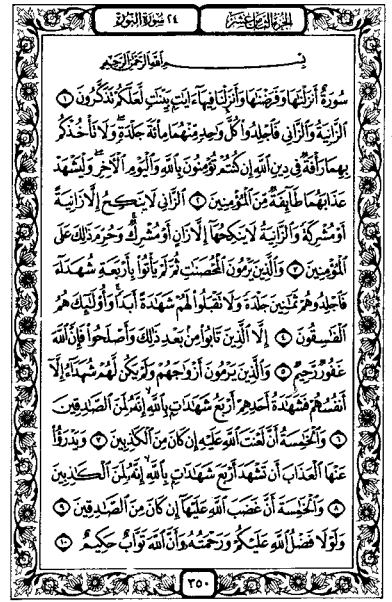 الجزء الثامن عشر
٢٤ سورة النور
بِسْمِ اللَّهِ الرَّحْمَٰنِ الرَّحِيمِ
سُورَةٌ أَنزَلْنَٰهَا وَفَرَضْنَٰهَا وَأَنزَلْنَا فِيهَآ ءَايَٰتٍۭ بَيِّنَٰتٍ لَّعَلَّكُمْ تَذَكَّرُونَ ١
الزَّانِيَةُ وَالزَّانِى فَاجْلِدُوا۟ كُلَّ وَٰحِدٍ مِّنْهُمَا مِا۟ئَةَ جَلْدَةٍ وَلَا تَأْخُذْكُم
بِهِمَا رَأْفَةٌ فِى دِينِ اللَّهِ إِن كُنتُمْ تُؤْمِنُونَ بِاللَّهِ وَالْيَوْمِ الْءَاخِرِ وَلْيَشْهَدْ
عَذَابَهُمَا طَآئِفَةٌ مِّنَ الْمُؤْمِنِينَ ٢ الزَّانِى لَا يَنكِحُ إِلَّا زَانِيَةً
أَوْ مُشْرِكَةً وَالزَّانِيَةُ لَا يَنكِحُهَآ إِلَّا زَانٍ أَوْ مُشْرِكٌ وَحُرِّمَ ذَٰلِكَ عَلَى
الْمُؤْمِنِينَ ٣ وَالَّذِينَ يَرْمُونَ الْمُحْصَنَٰتِ ثُمَّ لَمْ يَأْتُوا۟ بِأَرْبَعَةِ شُهَدَآءَ
فَاجْلِدُوهُمْ ثَمَٰنِينَ جَلْدَةً وَلَا تَقْبَلُوا۟ لَهُمْ شَهَٰدَةً أَبَدًا وَأُو۟لَٰٓئِكَ هُمُ
الْفَٰسِقُونَ ٤ إِلَّا الَّذِينَ تَابُوا۟ مِنۢ بَعْدِ ذَٰلِكَ وَأَصْلَحُوا۟ فَإِنَّ اللَّهَ
غَفُورٌ رَّحِيمٌ ٥ وَالَّذِينَ يَرْمُونَ أَزْوَٰجَهُمْ وَلَمْ يَكُن لَّهُمْ شُهَدَآءُ إِلَّآ
أَنفُسُهُمْ فَشَهَٰدَةُ أَحَدِهِمْ أَرْبَعُ شَهَٰدَٰتٍۭ بِاللَّهِ إِنَّهُۥ لَمِنَ الصَّٰدِقِينَ
٦ وَالْخَٰمِسَةُ أَنَّ لَعْنَتَ اللَّهِ عَلَيْهِ إِن كَانَ مِنَ الْكَٰذِبِينَ ٧ وَيَدْرَؤُا۟
عَنْهَا الْعَذَابَ أَن تَشْهَدَ أَرْبَعَ شَهَٰدَٰتٍۭ بِاللَّهِ إِنَّهُۥ لَمِنَ الْكَٰذِبِينَ
٨ وَالْخَٰمِسَةَ أَنَّ غَضَبَ اللَّهِ عَلَيْهَآ إِن كَانَ مِنَ الصَّٰدِقِينَ ٩
وَلَوْلَا فَضْلُ اللَّهِ عَلَيْكُمْ وَرَحْمَتُهُۥ وَأَنَّ اللَّهَ تَوَّابٌ حَكِيمٌ ١٠
٣٥٠